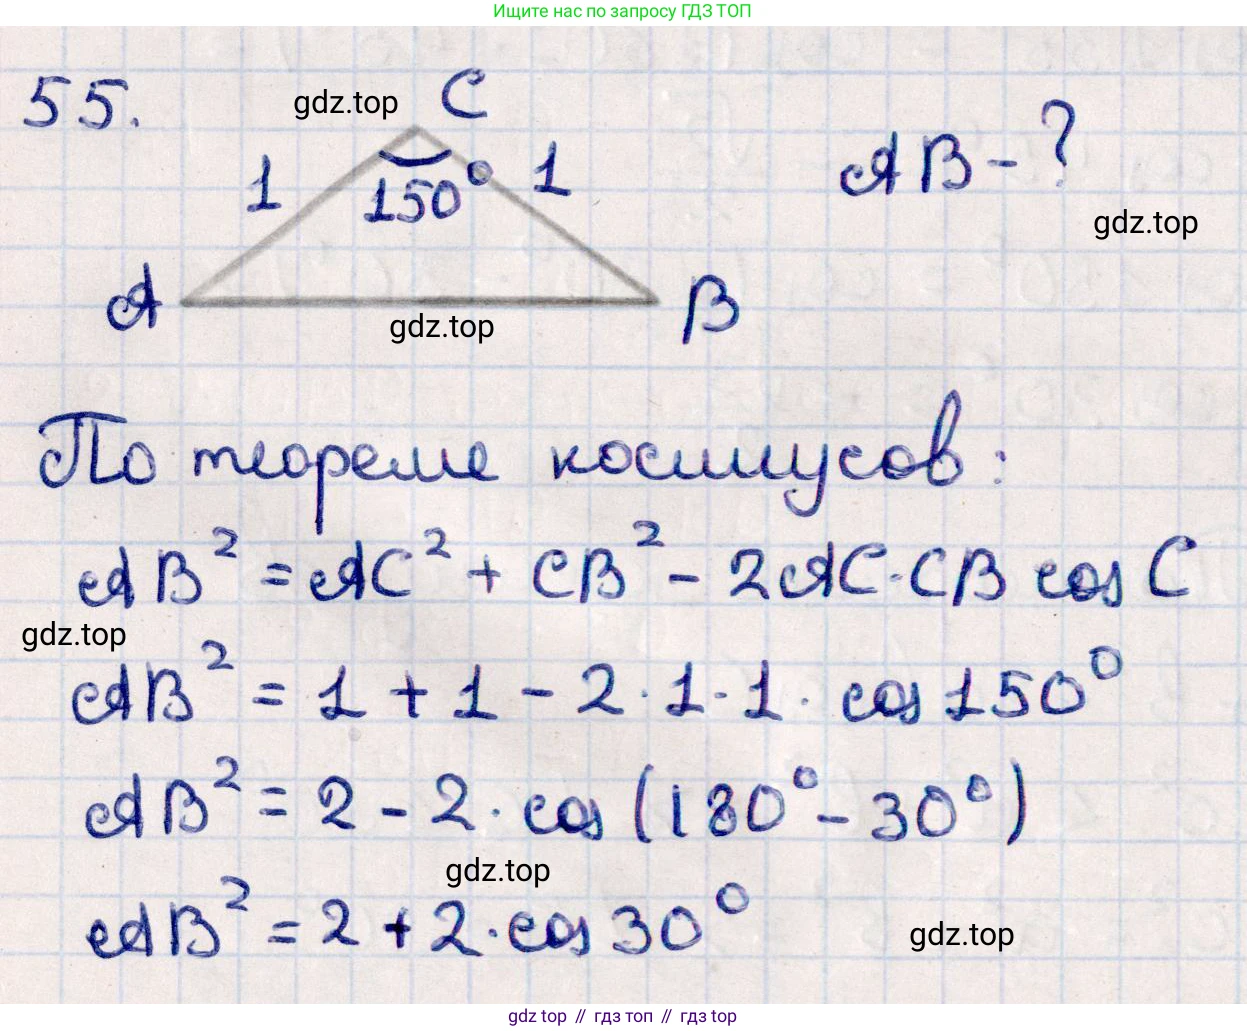 Ищите нас по запросу ГДЗ ТОП
55.
gdz.top
C
AB - ?
1
150°
1
gdz.top
A
B
gdz.top
По теореме косинусов:
AB² = AC² + CB² - 2AC·CB cos C
gdz.top
AB² = 1 + 1 - 2·1·1·cos 150°
AB² = 2 - 2·cos (180° - 30°)
gdz.top
AB² = 2 + 2·cos 30°
gdz.top
gdz top // гдз топ // gdz top